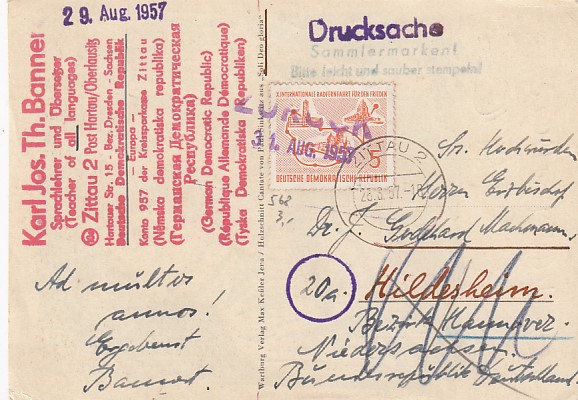 29. Aug. 1957
Karl Jos. Th. Banner
Sprachlehrer und Übersetzer
(Teacher of all languages)
Zittau 2 Post Hartau/Oberlausitz
Hartauer Str. 15 - Bez. Dresden - Sachsen
Deutsche Demokratische Republik
— Europa —
Konto 957 der Kreissparkasse Zittau
(Německa demokratiska republika)
(Германская Демократическая
Республика)
(German Democratic Republic)
(République Allemande Démocratique)
(Tyska Demokratiska Republiken)
Ad multos
annos!
Ergebenst
Banner.
Wartburg Verlag Max Keßler Jena / Holzschnitt Cantate von aus „Soli Deo gloria“
Drucksache
Sammlermarken!
Bitte leicht und sauber stempeln!
X. INTERNATIONALE RADFERNFAHRT FÜR DEN FRIEDEN
5
DEUTSCHE DEMOKRATISCHE REPUBLIK
1. AUG. 1957
ZITTAU 2
568
3,-
Sr. Hochwürden
Herrn Erzbischof
Dr. J. Godehard Machens
20a.
Hildesheim.
Bezirk Hannover.
Niedersachsen.
Bundesrepublik Deutschland.